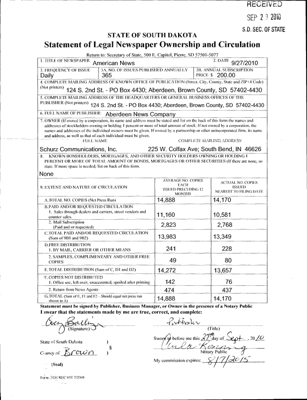 RECEIVED
SEP 29 2010
S.D. SEC. OF STATE
STATE OF SOUTH DAKOTA
Statement of Legal Newspaper Ownership and Circulation
Return to: Secretary of State, 500 E. Capitol, Pierre, SD 57501-5077
1. TITLE OF NEWSPAPER American News
2. DATE 9/27/2010
3. FREQUENCY OF ISSUE Daily
3A. NO. OF ISSUES PUBLISHED ANNUALLY 365
3B. ANNUAL SUBSCRIPTION PRICE $ 200.00
4. COMPLETE MAILING ADDRESS OF KNOWN OFFICE OF PUBLICATION (Street, City, County, State and ZIP+4 Code)
(Not printers) 124 S. 2nd St. - PO Box 4430; Aberdeen, Brown County, SD 57402-4430
5. COMPLETE MAILING ADDRESS OF THE HEADQUARTERS OR GENERAL BUSINESS OFFICES OF THE
PUBLISHER (Not printers) 124 S. 2nd St. - PO Box 4430; Aberdeen, Brown County, SD 57402-4430
6. FULL NAME OF PUBLISHER: Aberdeen News Company
7. OWNER (If owned by a corporation, its name and address must be stated and list on the back of this form the names and
addresses of stockholders owning or holding 1 percent or more of total amount of stock. If not owned by a corporation, the
names and addresses of the individual owners must be given. If owned by a partnership or other unincorporated firm, its name
and address, as well as that of each individual must be given.)
FULL NAME
COMPLETE MAILING ADDRESS
Schurz Communications, Inc.
225 W. Colfax Ave; South Bend, IN 46626
8. KNOWN BONDHOLDERS, MORTGAGES, AND OTHER SECURITY HOLDERS OWNING OR HOLDING 1
PERCENT OR MORE OF TOTAL AMOUNT OF BONDS, MORTGAGES OR OTHER SECURITIES (If there are none, so
state. If more space is needed, list on back of this form.
None
9. EXTENT AND NATURE OF CIRCULATION
AVERAGE NO. COPIES EACH ISSUED PRECEDING 12 MONTHS
ACTUAL NO. COPIES ISSUED NEAREST TO FILING DATE
A. TOTAL NO. COPIES (Net Press Run) 14,888 14,170
B. PAID AND/OR REQUESTED CIRCULATION
1. Sales through dealers and carriers, street vendors and counter sales. 11,160 10,581
2. Mail Subscription (Paid and or requested) 2,823 2,768
C. TOTAL PAID AND/OR REQUESTED CIRCULATION (Sum of 9B1 and 9B2) 13,983 13,349
D. FREE DISTRIBUTION
1. BY MAIL, CARRIER OR OTHER MEANS 241 228
2. SAMPLES, COMPLIMENTARY AND OTHER FREE COPIES 49 80
E. TOTAL DISTRIBUTION (Sum of C, D1 and D2) 14,272 13,657
F. COPIES NOT DISTRIBUTED
1. Office use, left over, unaccounted, spoiled after printing 142 76
2. Return from News Agents 474 437
G. TOTAL (Sum of E, F1 and F2 - Should equal net press run shown in A) 14,888 14,170
Statement must be signed by Publisher, Business Manager, or Owner in the presence of a Notary Public
I swear that the statements made by me are true, correct, and complete:
Publisher
(Title)
State of South Dakota )
County of Brown )
(Seal)
Notary Public
My commission expires: